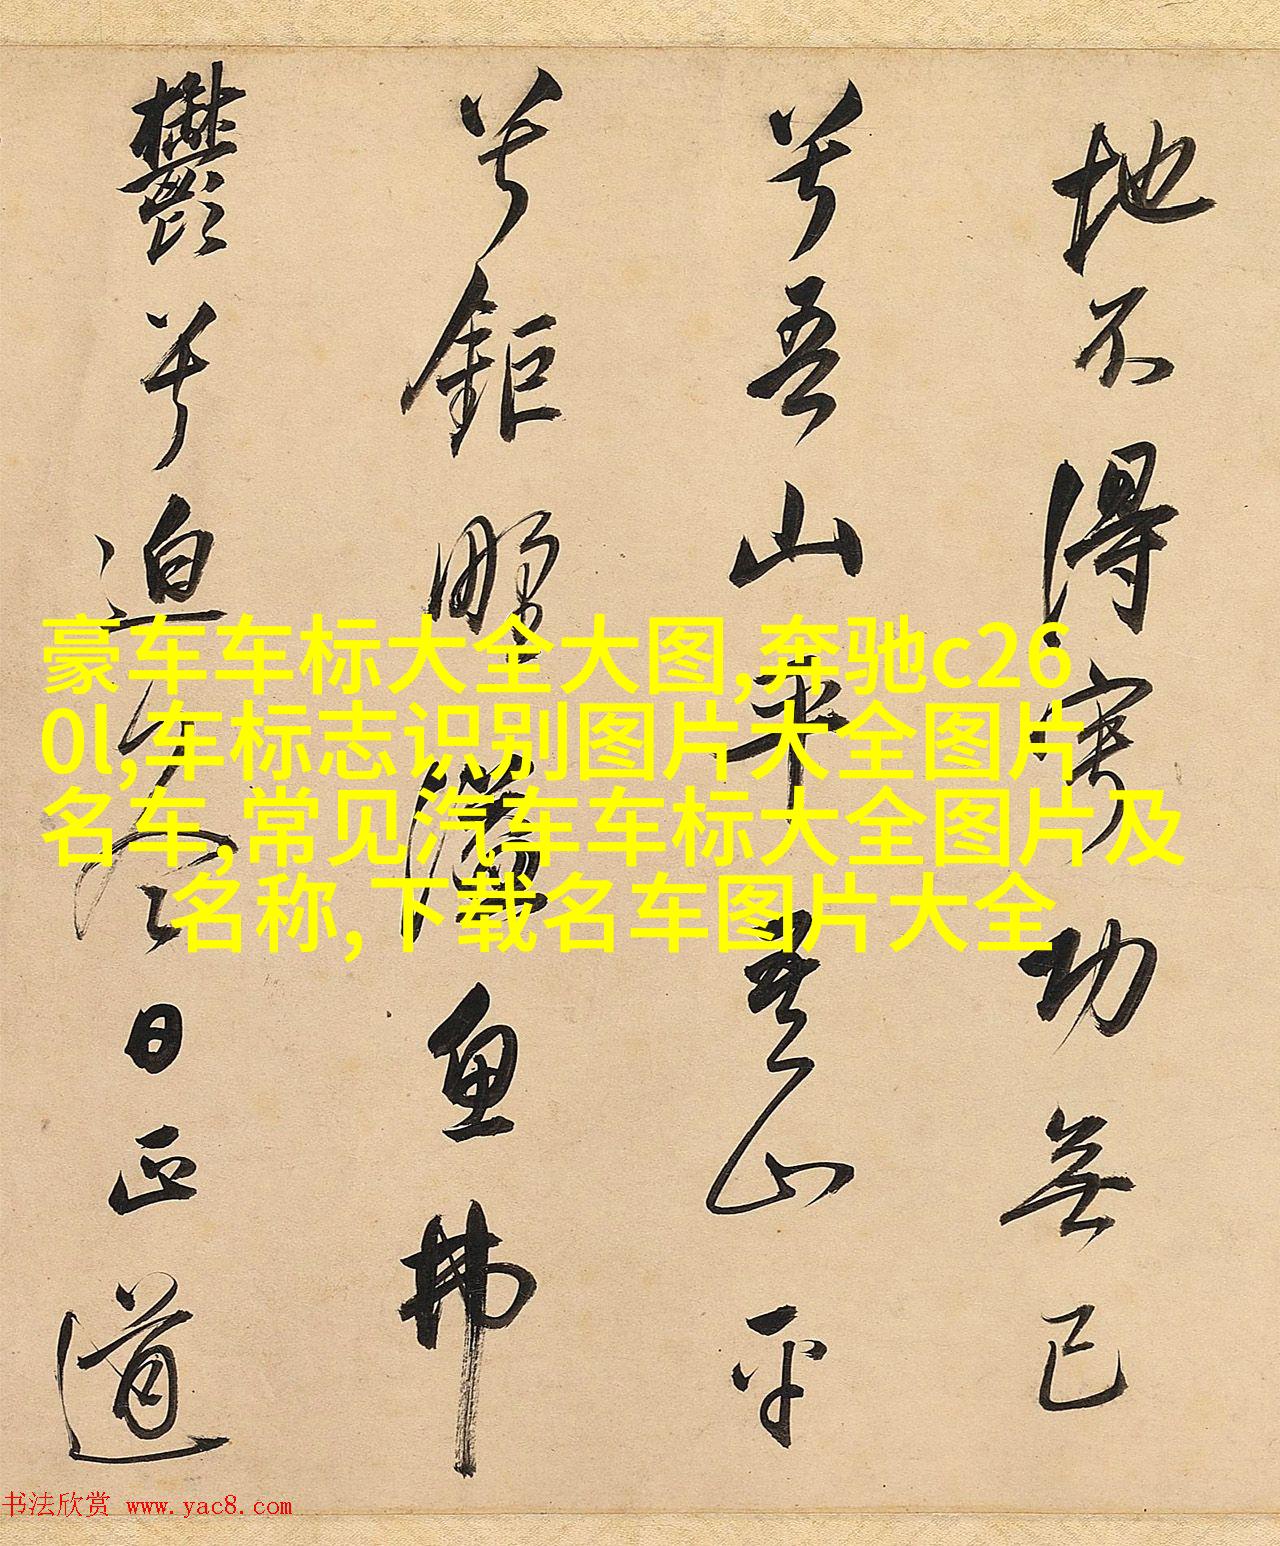 地不得寧功無已
兮吾山平吾山平
兮鉅野溢魚拂
鬱兮迫冬日正道
豪车车标大全大图,奔驰c26
0l,车标志识别图片大全图片
名车,常见汽车车标大全图片及
名称,下载名车图片大全
书法欣赏 www.yac8.com